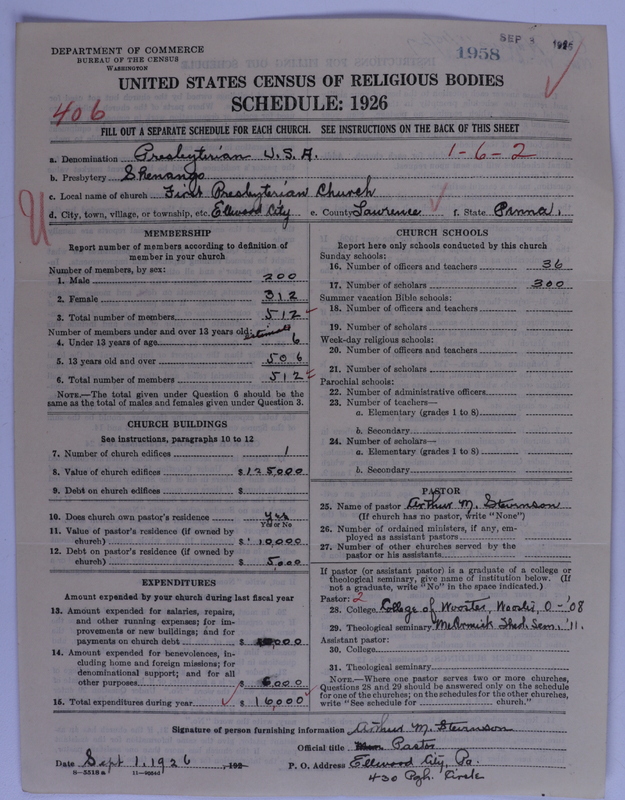 SEP 8 1926
1958
DEPARTMENT OF COMMERCE
BUREAU OF THE CENSUS
WASHINGTON
UNITED STATES CENSUS OF RELIGIOUS BODIES
SCHEDULE: 1926
406
FILL OUT A SEPARATE SCHEDULE FOR EACH CHURCH. SEE INSTRUCTIONS ON THE BACK OF THIS SHEET
a. Denomination Presbyterian U.S.A. 1-6-2
b. Presbytery Shenango
c. Local name of church First Presbyterian Church
d. City, town, village, or township, etc. Ellwood City e. County Lawrence f. State Penna.
MEMBERSHIP
Report number of members according to definition of
member in your church
Number of members, by sex:
1. Male 200
2. Female 312
3. Total number of members 512
Number of members under and over 13 years old:
4. Under 13 years of age 6
5. 13 years old and over 506
6. Total number of members 512
NOTE.—The total given under Question 6 should be
same as the total of males and females given under Question 3.
CHURCH BUILDINGS
See instructions, paragraphs 10 to 12
7. Number of church edifices 1
8. Value of church edifices $125,000
9. Debt on church edifices $
10. Does church own pastor's residence yes
Yes or No
11. Value of pastor's residence (if owned by
church) $10,000
12. Debt on pastor's residence (if owned by
church) $5,000
EXPENDITURES
Amount expended by your church during last fiscal year
13. Amount expended for salaries, repairs,
and other running expenses; for im-
provements or new buildings; and for
payments on church debt $
14. Amount expended for benevolences, in-
cluding home and foreign missions; for
denominational support; and for all
other purposes $6,000
15. Total expenditures during year $16,000
CHURCH SCHOOLS
Report here only schools conducted by this church
Sunday schools:
16. Number of officers and teachers 36
17. Number of scholars 300
Summer vacation Bible schools:
18. Number of officers and teachers
19. Number of scholars
Week-day religious schools:
20. Number of officers and teachers
21. Number of scholars
Parochial schools:
22. Number of administrative officers
23. Number of teachers—
a. Elementary (grades 1 to 8)
b. Secondary
24. Number of scholars—
a. Elementary (grades 1 to 8)
b. Secondary
PASTOR
25. Name of pastor Arthur M. Stevenson
(If church has no pastor, write "None")
26. Number of ordained ministers, if any, em-
ployed as assistant pastors
27. Number of other churches served by the
pastor or his assistants
If pastor (or assistant pastor) is a graduate of a college or
theological seminary, give name of institution below. (If
not a graduate, write "No" in the space indicated.)
Pastor: 2
28. College College of Wooster, Wooster, O-'08
29. Theological seminary McCormick Theol. Sem. '11.
Assistant pastor:
30. College
31. Theological seminary
NOTE.—Where one pastor serves two or more churches,
Questions 28 and 29 should be answered only on the schedule
for one of the churches; on the schedules for the other churches,
write "See schedule for church."
Signature of person furnishing information Arthur M. Stevenson
Official title Pastor
Date Sept 1, 1926, 192 P. O. Address Ellwood City, Pa.
8-5518a 430 Pgh. Circle